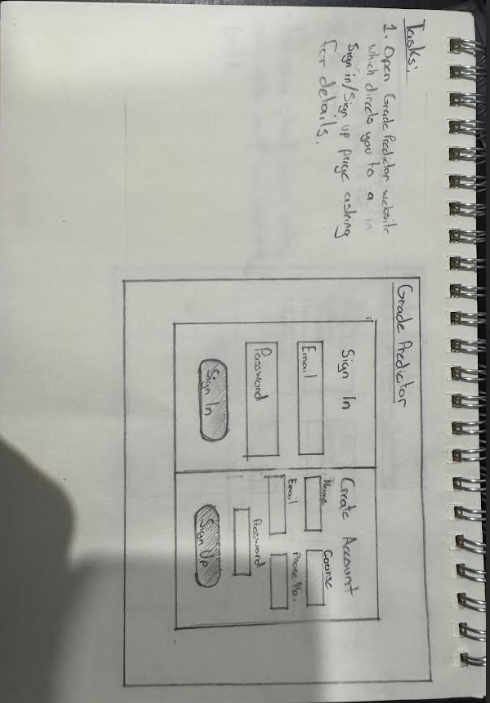 Tasks:
1. Open Grade Predictor website
which directs you to a
Sign in/Sign up page asking
for details.
Grade Predictor
Sign In
Email
Password
Sign In
Create Account
Name
Course
Email
Phone No.
Password
Sign Up